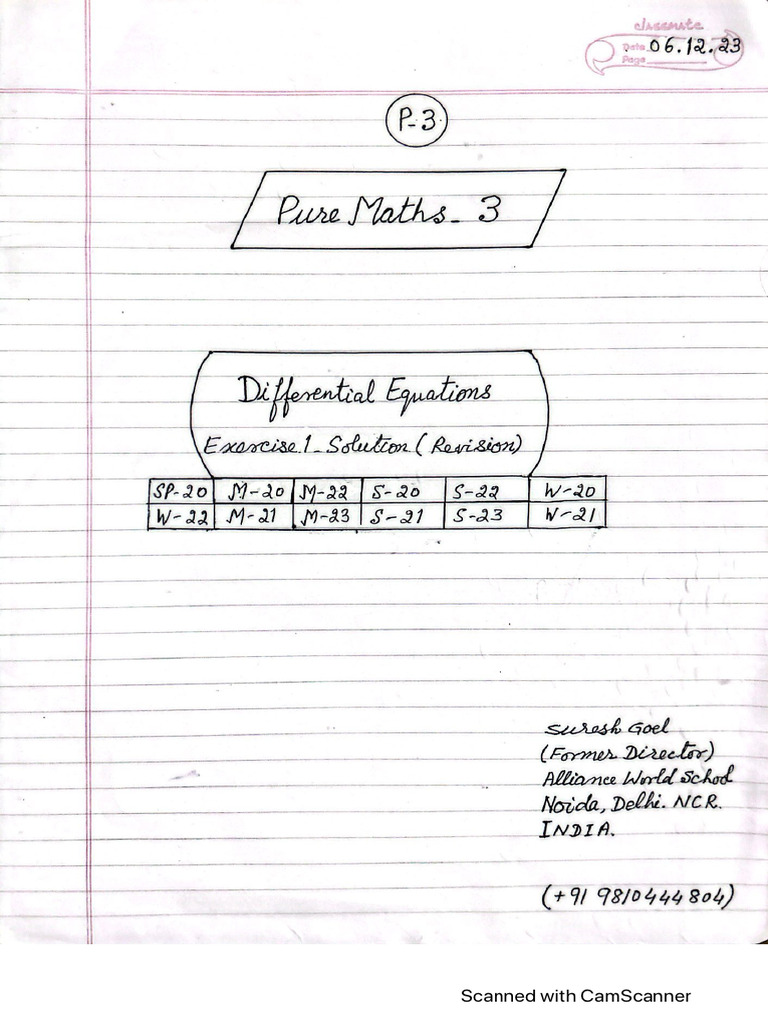 classmate
Date 06.12.23
Page
P-3
Pure Maths - 3
Differential Equations
Exercise.1 - Solution (Revision)
SP-20 M-20 M-22 S-20 S-22 W-20
W-22 M-21 M-23 S-21 S-23 W-21
Suresh Goel
(Former Director)
Alliance World School
Noida, Delhi. NCR.
INDIA.
(+91 9810444804)
Scanned with CamScanner